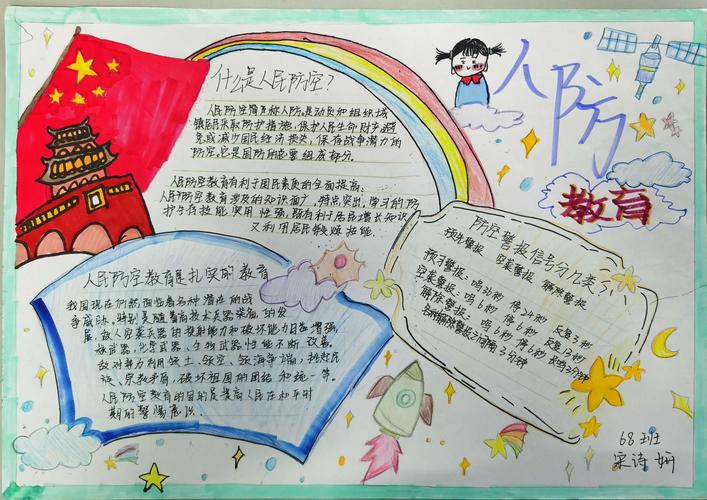 什么是人民防空?
人民防空简称人防。是动员和组织城
镇居民采取防护措施,保护人民生命财产避
免或减少国民经济损失,保存战争潜力的
防空。它是国防的重要组成部分。
人民防空教育有利于国民素质的全面提高:
人民防空教育涉及的知识面广,特点突出,学习的防
护生存技能实用性强,既有利于居民增长知识
又利居民锻炼技能
人防
教育
防空警报信号分几类
预先警报 空袭警报 解除警报
预习警报:鸣36秒 停24秒 反复3秒
空袭警报:鸣6秒 停6秒 反复13秒
解除警报
人民防空教育是扎实的教育
我国现在仍然面临着各种潜在的战
争威胁,特别是随着高技术兵器装备的发
展,敌人空袭兵器的投射能力和破坏能力日益增强,
核武器,化学武器,生物武器性能不断改善。
敌对势力利用领土、领空、领海争端,挑起民
族、宗教矛盾,破坏祖国的团结和统一等。
人民防空教育的目的是提高人民在和平时
期的警惕意识
68班
宋诗妍